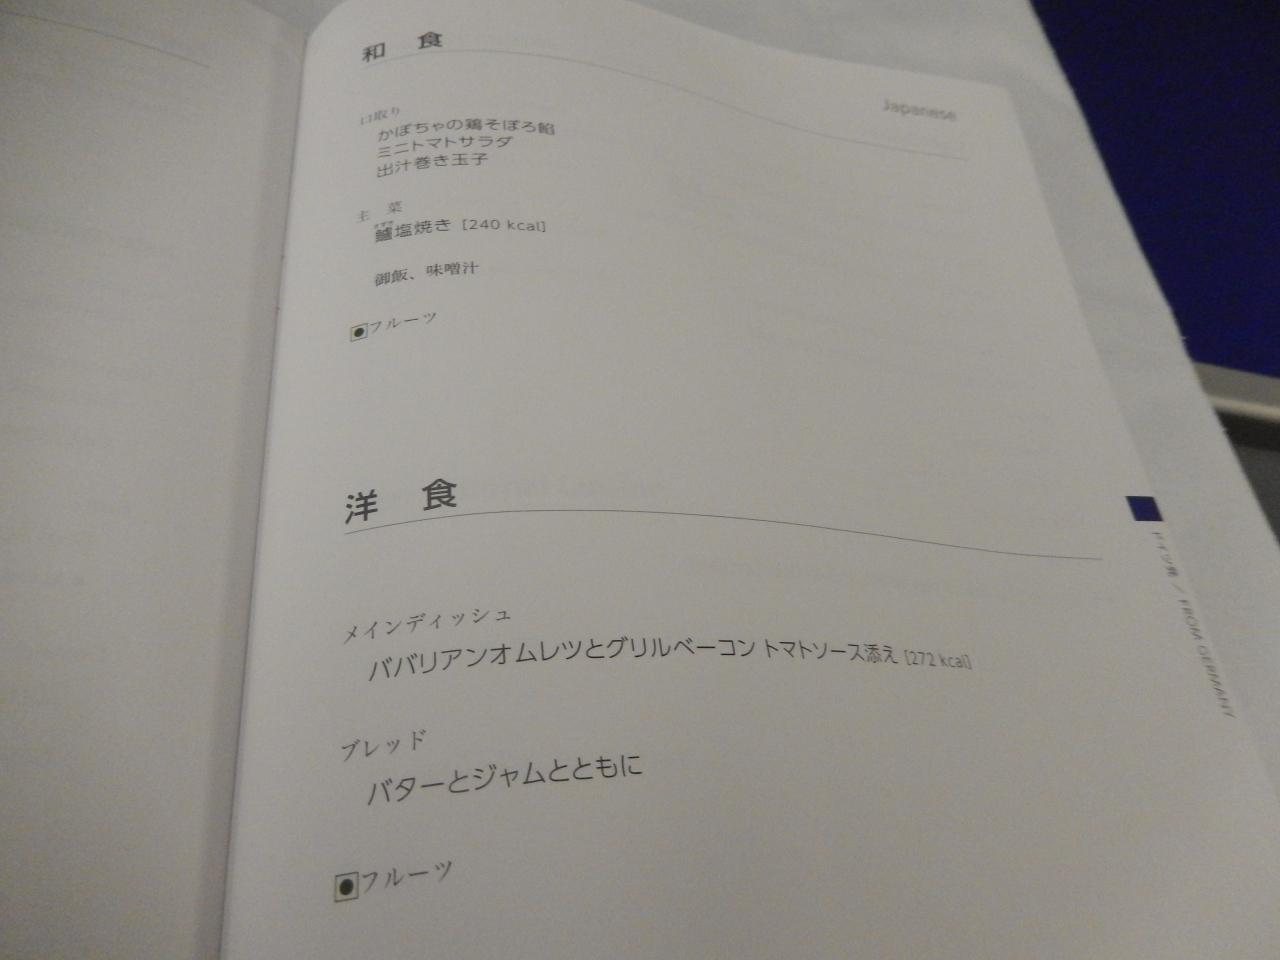 和 食
Japanese
口取り
かぼちゃの鶏そぼろ餡
ミニトマトサラダ
出汁巻き玉子
主 菜
すずき
鱸塩焼き [240 kcal]
御飯、味噌汁
フルーツ
洋 食
メインディッシュ
ババリアンオムレツとグリルベーコン トマトソース添え [272 kcal]
ブレッド
バターとジャムとともに
フルーツ
ドイツ発 / FROM GERMANY